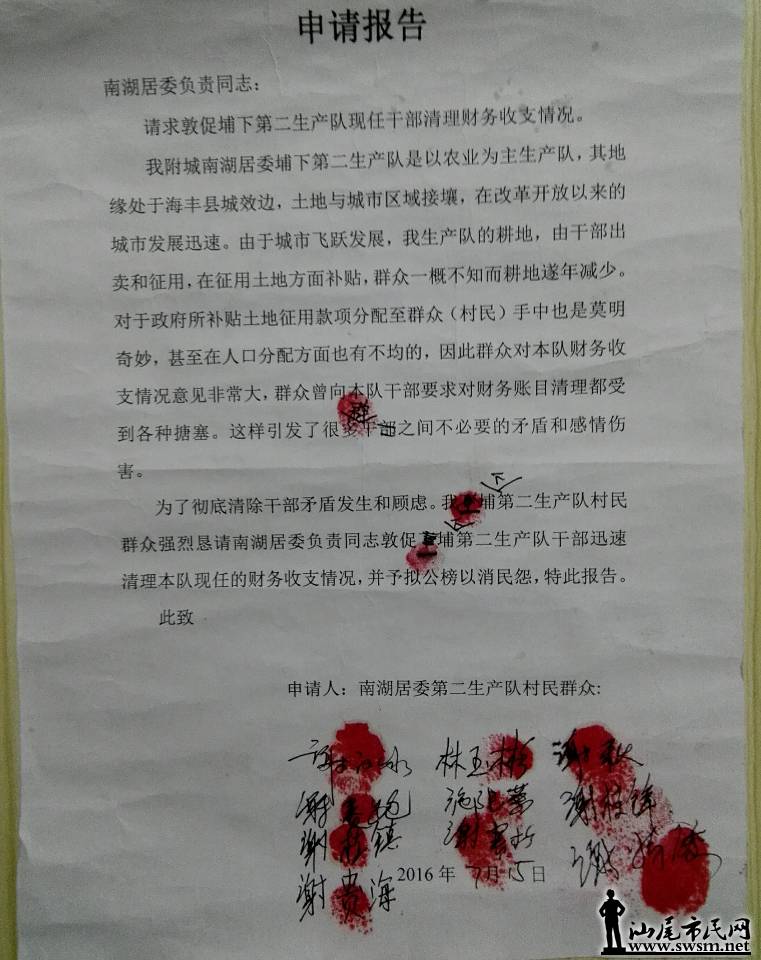 申请报告
南湖居委负责同志：
请求敦促埔下第二生产队现任干部清理财务收支情况。
我附城南湖居委埔下第二生产队是以农业为主生产队，其地
缘处于海丰县城效边，土地与城市区域接壤，在改革开放以来的
城市发展迅速。由于城市飞跃发展，我生产队的耕地，由干部出
卖和征用，在征用土地方面补贴，群众一概不知而耕地遂年减少。
对于政府所补贴土地征用款项分配至群众（村民）手中也是莫明
奇妙，甚至在人口分配方面也有不均的，因此群众对本队财务收
支情况意见非常大，群众曾向本队干部要求对财务账目清理都受
到各种搪塞。这样引发了很多干群之间不必要的矛盾和感情伤
害。
为了彻底清除干部矛盾发生和顾虑。我埔下第二生产队村民
群众强烈恳请南湖居委负责同志敦促埔下第二生产队干部迅速
清理本队现任的财务收支情况，并予拟公榜以消民怨，特此报告。
此致
申请人：南湖居委第二生产队村民群众:
林玉彬 谢秋
谢镇
谢贵海 2016 年 7月15日
汕尾市民网
www.swsm.net